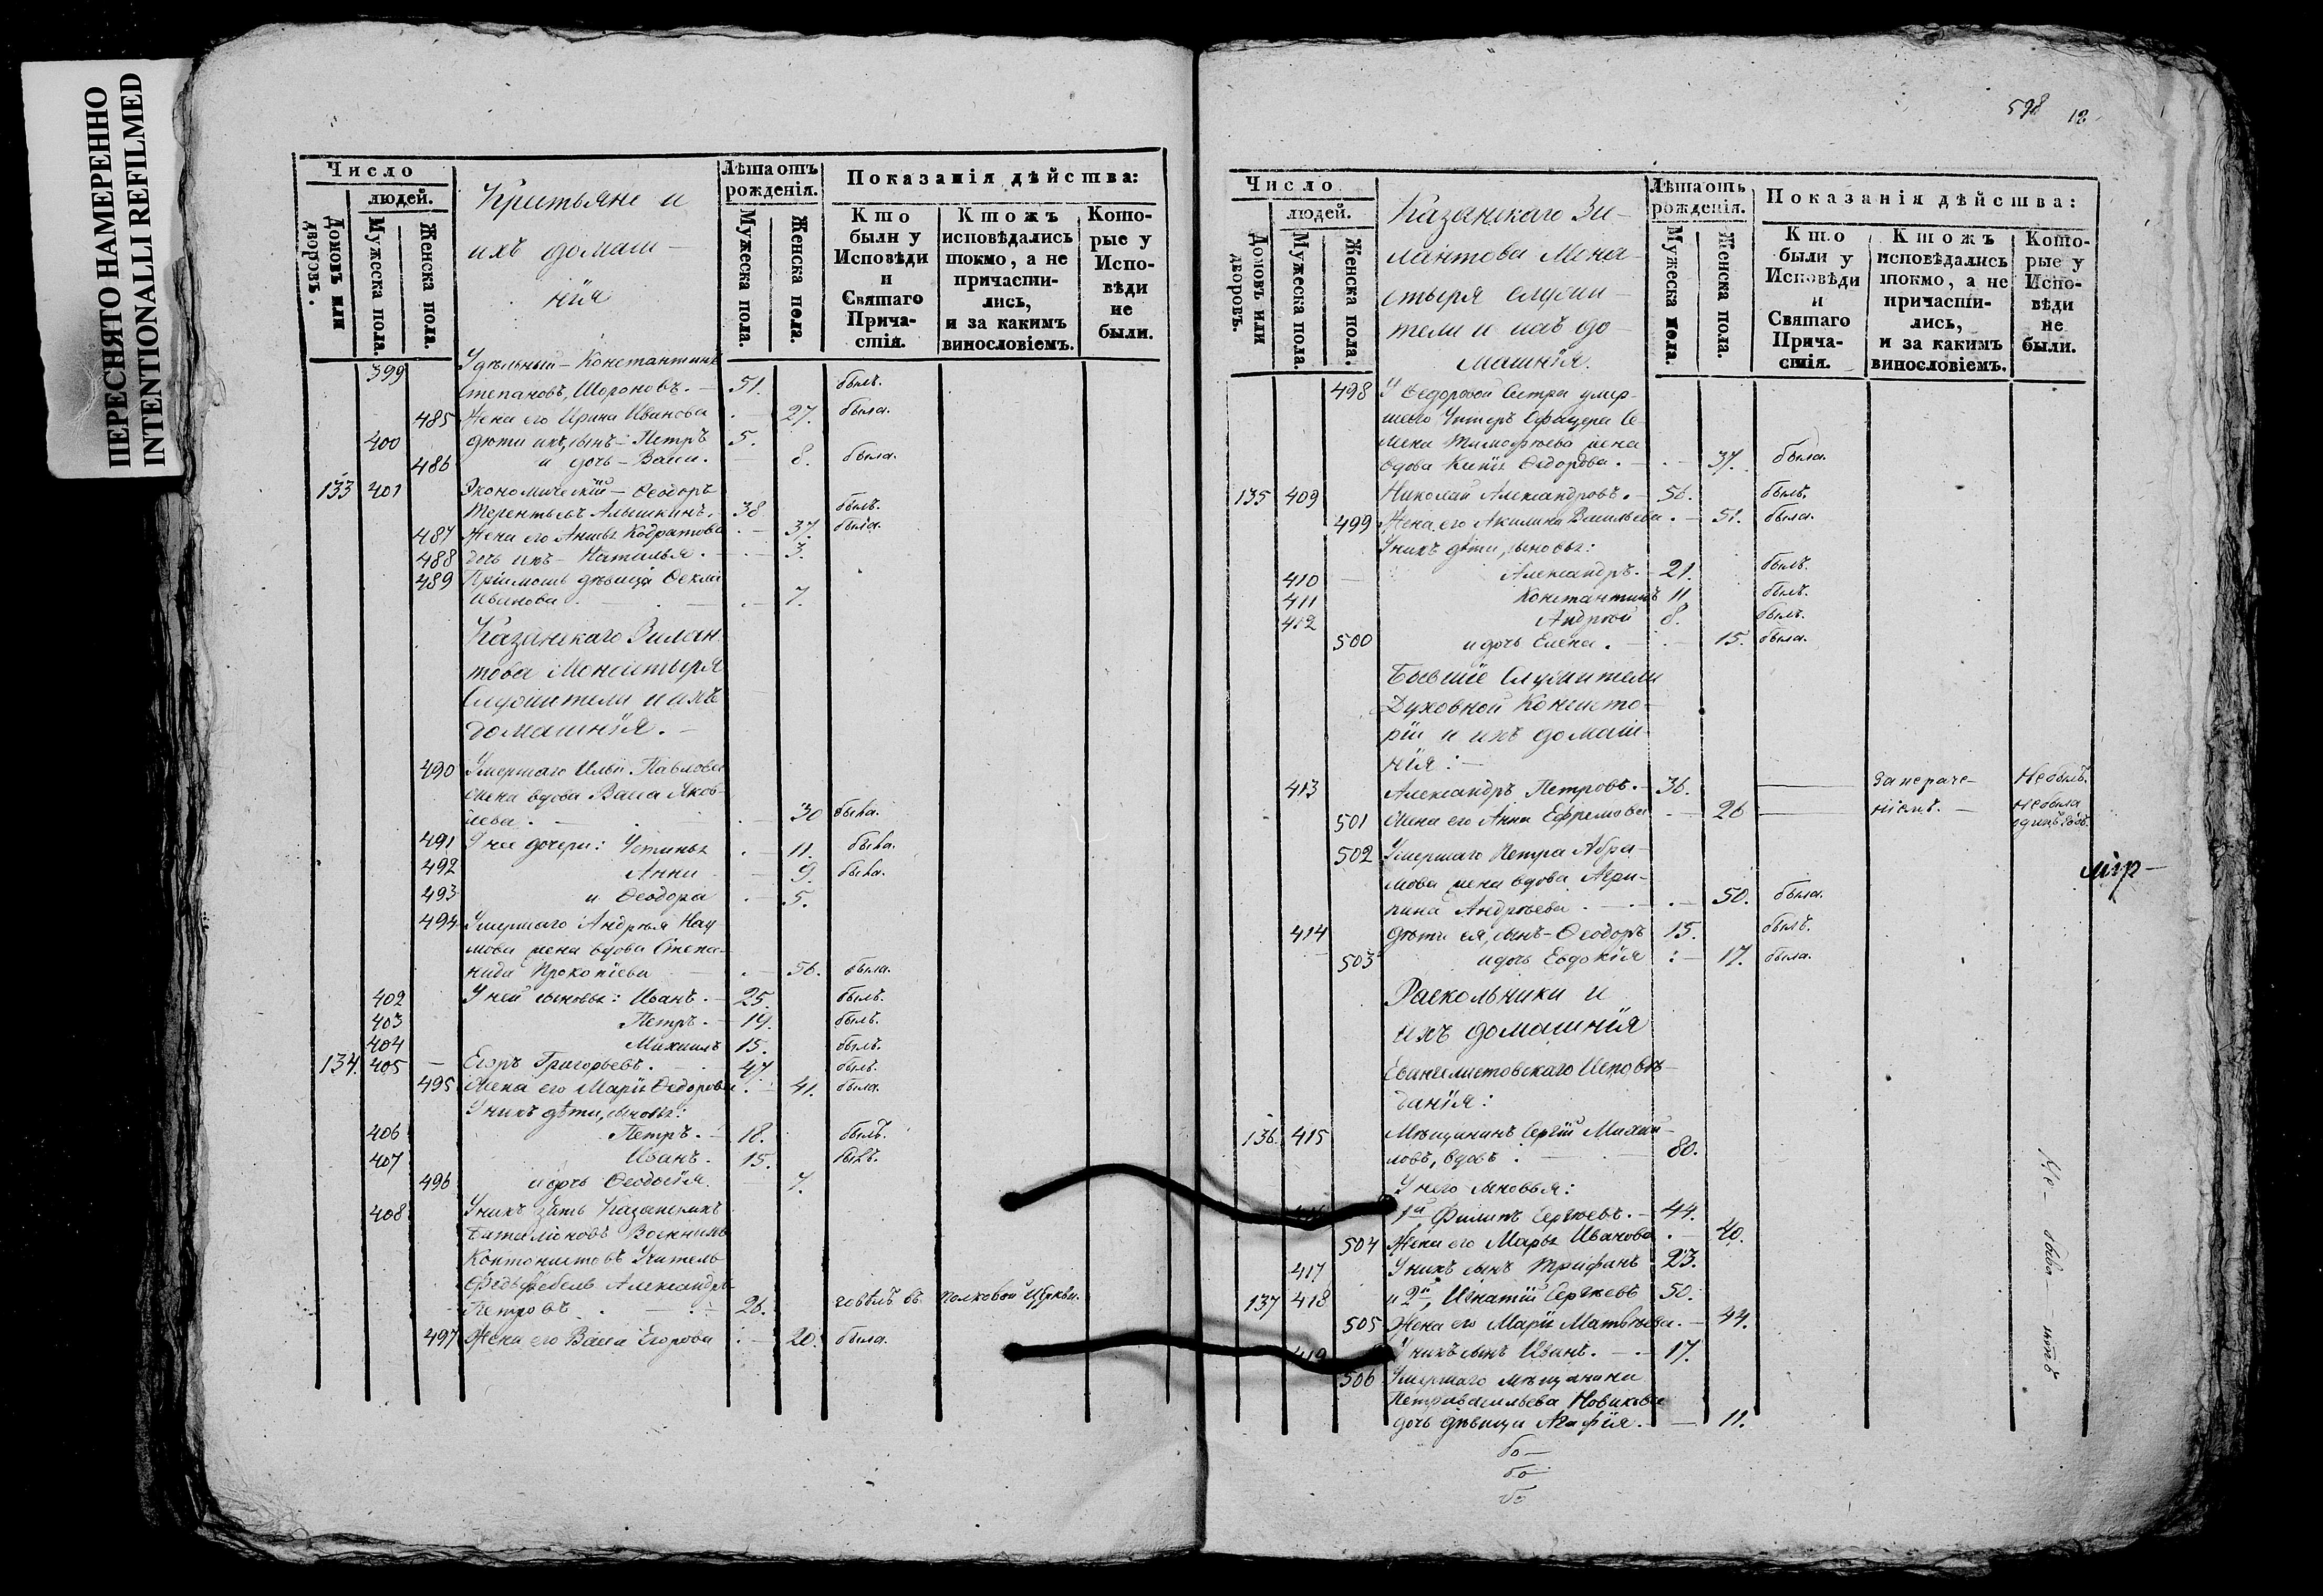 ПЕРЕСНЯТО НАМЕРЕННО
INTENTIONALLI REFILMED
Число
людей.
Домовъ или дворовъ.
Мужеска пола.
Женска пола.
Крестьяне и
ихъ домаш-
нія
Лѣта отъ рожденія.
Мужеска пола.
Женска пола.
Показанія дѣйства:
Кто были у Исповѣди и Святаго Прича-стія.
Ктожъ исповѣдались токмо, а не причасти-лись, и за какимъ винословіемъ.
Кото-рые у Испо-вѣди не были.
399 Удѣльный - Константинъ
Степановъ, Шороновъ. - 51. былъ.
485 Жена его Ирина Иванова . - 27. была.
400 дѣти ихъ, сынъ - Петръ 5.
486 и дочь - Васса. - 8. была.
133 401 Экономическій - Ѳеодоръ
Терентьевъ Алышкинъ. 38 былъ.
487 Жена его Анна Кодратова . - 37. была.
488 дочь ихъ - Наталья. - 3.
489 Пріимошъ дѣвица Ѳекла
Иванова . - 7.
Казанскаго Зилан-
това Монастыря
Служители и ихъ
домашнія. -
490 Умершаго Ильи Павлова
жена вдова Васса Яков-
лева. - 30 была.
491 У нее дочери: Устинья . - 11. была.
492 Анна - 9. была.
493 и Ѳеодора . - 5.
494 Умершаго Андрея Нау-
мова жена вдова Степа-
нида Прокопіева . - 56. была.
402 У ней сыновья: Иванъ. - 25. былъ.
403 Петръ. - 19. былъ.
404 Михаилъ 15. былъ.
134. 405 - Егоръ Григорьевъ. - 47 былъ.
495 Жена его Марья Ѳедорова . - 41. была.
У нихъ дѣти, сыновья:
406 Петръ. - 18. былъ.
407 Иванъ. 15. былъ.
496 и дочь Ѳеодосія. - 7.
408 У нихъ зять Казанскихъ
Баталіоновъ Военныхъ
Контонистовъ Учитель
Фельдфебель Александръ
Петровъ . - 26. говѣлъ въ полковой Церкви.
497 Жена его Васса Егорова . - 20. была.
598 12
Число
людей.
Домовъ или дворовъ.
Мужеска пола.
Женска пола.
Казанскаго Зи-
лантова Мона-
стыря служи-
тели и ихъ до-
машнія.
Лѣта отъ рожденія.
Мужеска пола.
Женска пола.
Показанія дѣйства:
Кто были у Исповѣди и Святаго Прича-стія.
Ктожъ исповѣдались токмо, а не причасти-лись, и за какимъ винословіемъ.
Кото-рые у Испо-вѣди не были.
498 У Ѳедоровой Сестра умер-
шаго Унтеръ Офицера Се-
мена Тимофѣева жена
вдова Ѳедорова. - 37. была.
135 409 Николай Александровъ. - 56. былъ.
499 Жена его Акилина Васильева. - 51. была.
У нихъ дѣти, сыновья:
410 - Александръ. - 21. былъ.
411 Константинъ 11 былъ.
412 Андрей 8. былъ.
500 и дочь Елена. - 15. была.
Бывшіе Служители
Духовной Консисто-
ріи и ихъ домаш-
нія: -
413 Александръ Петровъ. - 36. - За нераче- Не былъ.
501 Жена его Анна Ефремова - 26 - ніемъ. - не была
одинъ годъ.
502 Умершаго Петра Абра-
мова жена вдова Агри-
пина Андрѣева . - 50. была.
414 дѣти ея, сынъ - Ѳеодоръ 15. былъ.
503 и дочь Евдокія : - 17. была.
Раскольники и
ихъ домашнія
Евангелистовскаго Исповѣ-
данія:
136. 415 Мѣщанинъ Сергій Михаи-
ловъ, вдовъ . - 80.
У него сыновья:
1й Филипъ Сергѣевъ. - 44.
504 Жена его Марья Иванова . - 40.
417 У нихъ сынъ Трифанъ 23.
137 418 и 2й, Игнатій Сергѣевъ 50.
505 Жена его Марья Матвѣева. - 44.
419 У нихъ сынъ Иванъ. - 17.
506 Умершаго мѣщанина
Петра Васильева Новикова
дочь дѣвица Агафія. - 11.